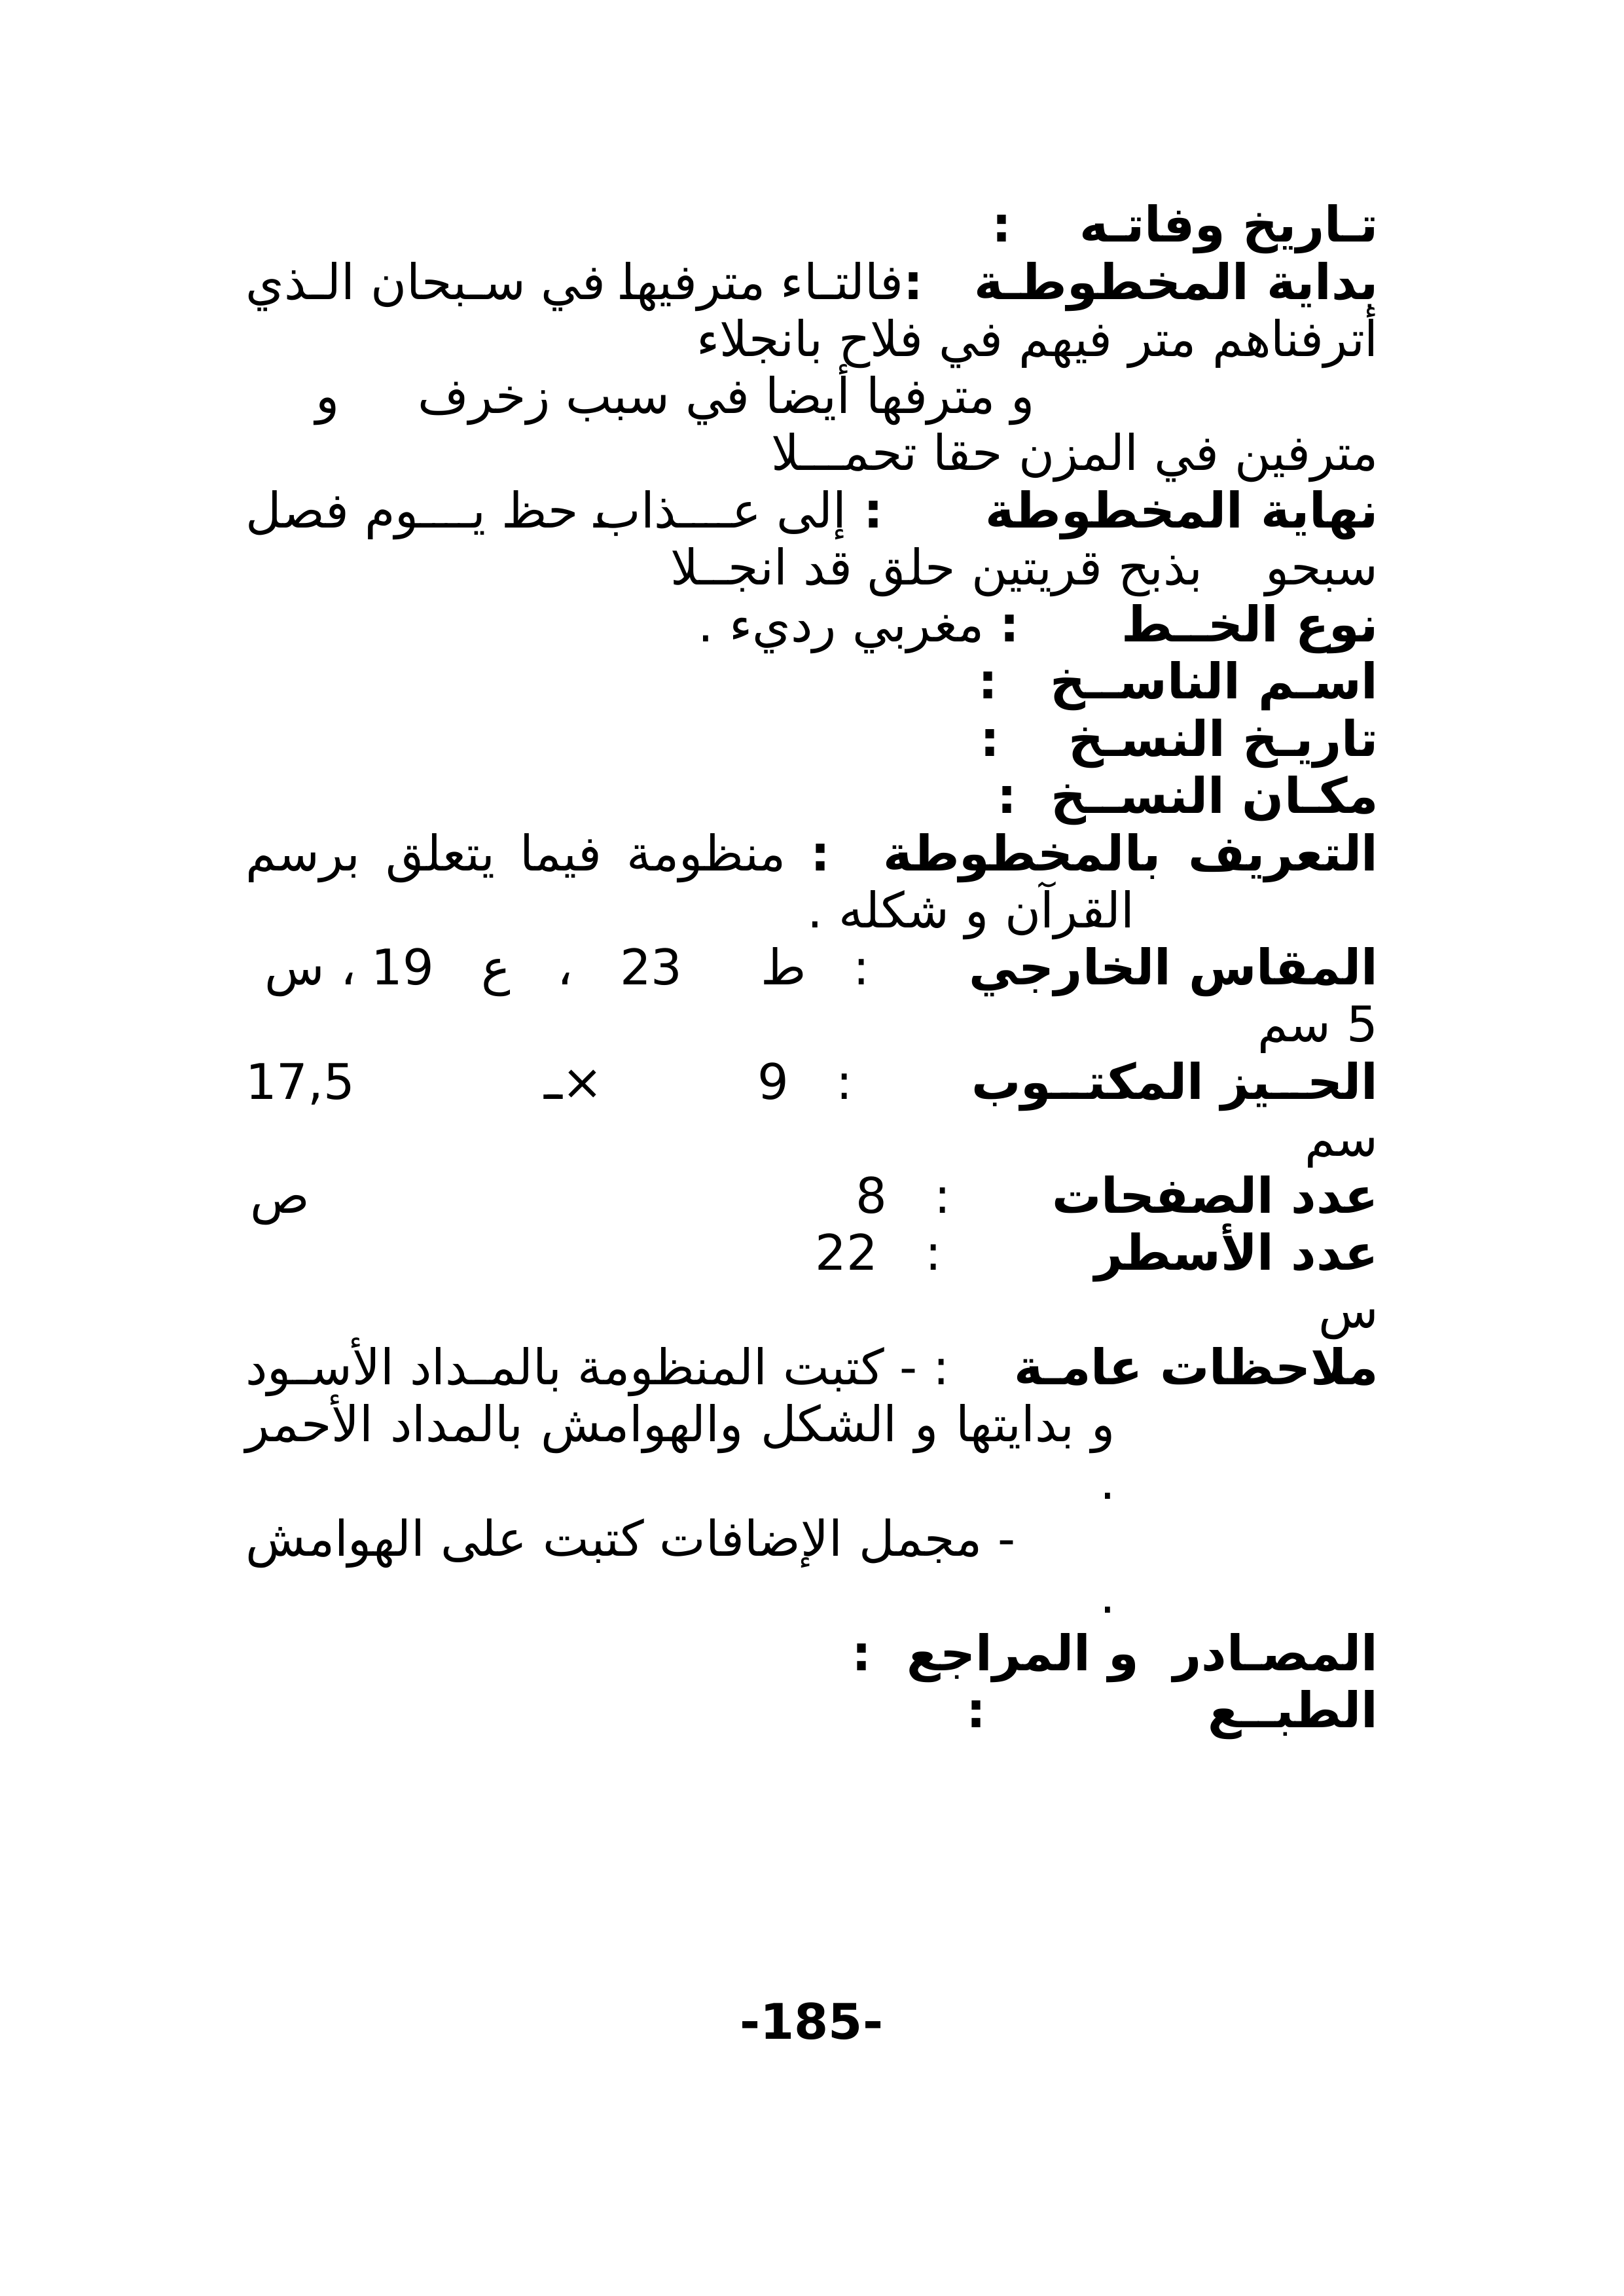 تـاريخ وفاتـه :
بداية المخطوطـة :فالتـاء مترفيها في سـبحان الـذي
أترفناهم متر فيهم في فلاح بانجلاء
و مترفها أيضا في سبب زخرف و
مترفين في المزن حقا تحمـــلا
نهاية المخطوطة : إلى عـــذاب حظ يـــوم فصل
سبحو بذبح قريتين حلق قد انجــلا
نوع الخــط : مغربي رديء .
اسـم الناســخ :
تاريـخ النسـخ :
مكـان النســخ :
التعريف بالمخطوطة : منظومة فيما يتعلق برسم
القرآن و شكله .
المقاس الخارجي : ط 23 ، ع 19 ، س
5 سم
الحــيز المكتــوب : 9 ×ـ 17,5
سم
عدد الصفحات : 8 ص
عدد الأسطر : 22
س
ملاحظات عامـة : - كتبت المنظومة بالمـداد الأسـود
و بدايتها و الشكل والهوامش بالمداد الأحمر
.
- مجمل الإضافات كتبت على الهوامش
.
المصـادر و المراجع :
الطبــع :
-185-